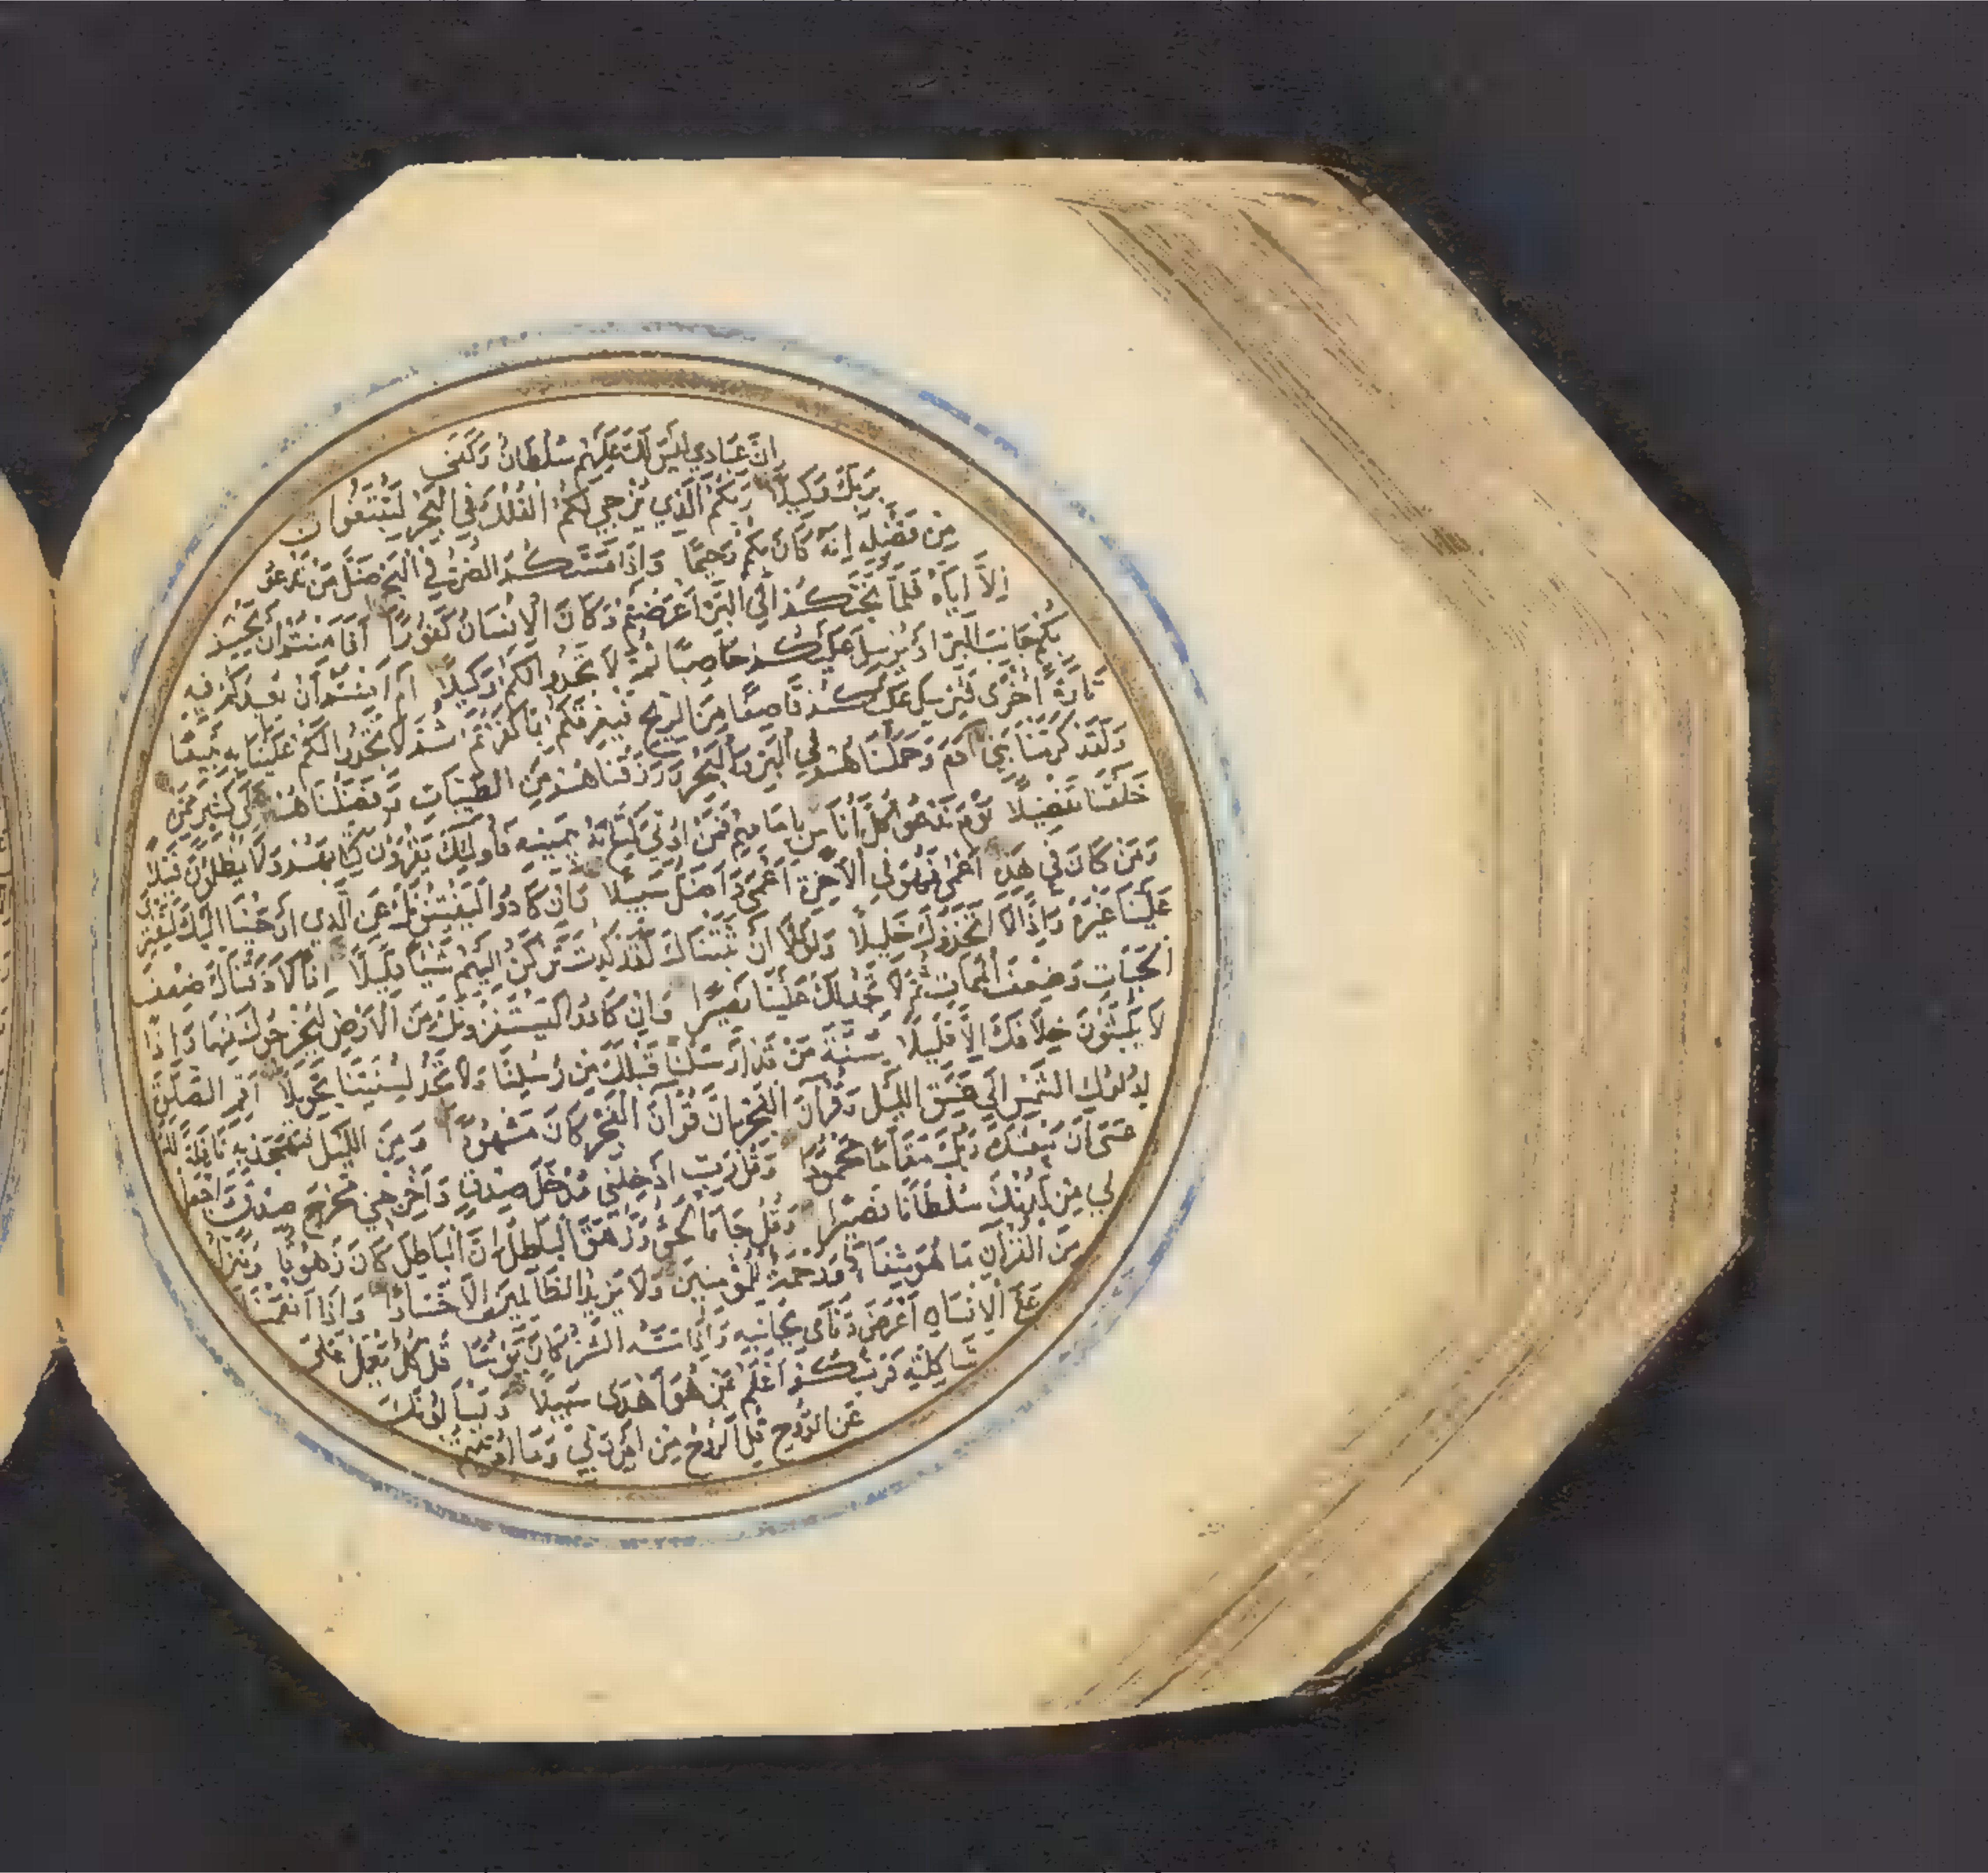 اِنَّ عِبَادِي لَيْسَ لَكَ عَلَيْهِمْ سُلْطَانٌ وَكَفَى
بِرَبِّكَ وَكِيلًا رَبُّكُمُ الَّذِي يُزْجِي لَكُمُ الْفُلْكَ فِي الْبَحْرِ لِتَبْتَغُوا
مِنْ فَضْلِهِ اِنَّهُ كَانَ بِكُمْ رَحِيمًا وَاِذَا مَسَّكُمُ الضُّرُّ فِي الْبَحْرِ ضَلَّ مَنْ تَدْعُونَ
اِلَّا اِيَّاهُ فَلَمَّا نَجَّيكُمْ اِلَى الْبَرِّ اَعْرَضْتُمْ وَكَانَ الْاِنْسَانُ كَفُورًا اَفَاَمِنْتُمْ اَنْ يَخْسِفَ
بِكُمْ جَانِبَ الْبَرِّ اَوْ يُرْسِلَ عَلَيْكُمْ حَاصِبًا ثُمَّ لَا تَجِدُوا لَكُمْ وَكِيلًا اَمْ اَمِنْتُمْ اَنْ يُعِيدَكُمْ فِيهِ
تَارَةً اُخْرَى فَيُرْسِلَ عَلَيْكُمْ قَاصِفًا مِنَ الرِّيحِ فَيُغْرِقَكُمْ بِمَا كَفَرْتُمْ ثُمَّ لَا تَجِدُوا لَكُمْ عَلَيْنَا بِهِ تَبِيعًا
وَلَقَدْ كَرَّمْنَا بَنِي آدَمَ وَحَمَلْنَاهُمْ فِي الْبَرِّ وَالْبَحْرِ وَرَزَقْنَاهُمْ مِنَ الطَّيِّبَاتِ وَفَضَّلْنَاهُمْ عَلَى كَثِيرٍ مِمَّنْ
خَلَقْنَا تَفْضِيلًا يَوْمَ نَدْعُو كُلَّ اُنَاسٍ بِاِمَامِهِمْ فَمَنْ اُوتِيَ كِتَابَهُ بِيَمِينِهِ فَاُولَئِكَ يَقْرَؤُنَ كِتَابَهُمْ وَلَا يُظْلَمُونَ فَتِيلًا
وَمَنْ كَانَ فِي هَذِهِ اَعْمَى فَهُوَ فِي الْاٰخِرَةِ اَعْمَى وَاَضَلُّ سَبِيلًا وَاِنْ كَادُوا لَيَفْتِنُونَكَ عَنِ الَّذِي اَوْحَيْنَا اِلَيْكَ لِتَفْتَرِيَ
عَلَيْنَا غَيْرَهُ وَاِذًا لَاتَّخَذُوكَ خَلِيلًا وَلَوْلَا اَنْ ثَبَّتْنَاكَ لَقَدْ كِدْتَ تَرْكَنُ اِلَيْهِمْ شَيْئًا قَلِيلًا اِذًا لَاَذَقْنَاكَ ضِعْفَ
الْحَيَاتِ وَضِعْفَ الْمَمَاتِ ثُمَّ لَا تَجِدُ لَكَ عَلَيْنَا نَصِيرًا وَاِنْ كَادُوا لَيَسْتَفِزُّونَكَ مِنَ الْاَرْضِ لِيُخْرِجُوكَ مِنْهَا وَاِذًا
لَا يَلْبَثُونَ خِلَافَكَ اِلَّا قَلِيلًا سُنَّةَ مَنْ قَدْ اَرْسَلْنَا قَبْلَكَ مِنْ رُسُلِنَا وَلَا تَجِدُ لِسُنَّتِنَا تَحْوِيلًا اَقِمِ الصَّلٰوةَ
لِدُلُوكِ الشَّمْسِ اِلَى غَسَقِ اللَّيْلِ وَقُرْآنَ الْفَجْرِ اِنَّ قُرْآنَ الْفَجْرِ كَانَ مَشْهُودًا وَمِنَ اللَّيْلِ فَتَهَجَّدْ بِهِ نَافِلَةً لَكَ
عَسَى اَنْ يَبْعَثَكَ رَبُّكَ مَقَامًا مَحْمُودًا وَقُلْ رَبِّ اَدْخِلْنِي مُدْخَلَ صِدْقٍ وَاَخْرِجْنِي مُخْرَجَ صِدْقٍ وَاجْعَلْ
لِي مِنْ لَدُنْكَ سُلْطَانًا نَصِيرًا وَقُلْ جَاءَ الْحَقُّ وَزَهَقَ الْبَاطِلُ اِنَّ الْبَاطِلَ كَانَ زَهُوقًا وَنُنَزِّلُ
مِنَ الْقُرْآنِ مَا هُوَ شِفَاءٌ وَرَحْمَةٌ لِلْمُؤْمِنِينَ وَلَا يَزِيدُ الظَّالِمِينَ اِلَّا خَسَارًا وَاِذَا اَنْعَمْنَا
عَلَى الْاِنْسَانِ اَعْرَضَ وَنَاَى بِجَانِبِهِ وَاِذَا مَسَّهُ الشَّرُّ كَانَ يَؤُسًا قُلْ كُلٌّ يَعْمَلُ عَلَى
شَاكِلَتِهِ فَرَبُّكُمْ اَعْلَمُ بِمَنْ هُوَ اَهْدَى سَبِيلًا وَيَسْأَلُونَكَ
عَنِ الرُّوحِ قُلِ الرُّوحُ مِنْ اَمْرِ رَبِّي وَمَا اُوتِيتُمْ